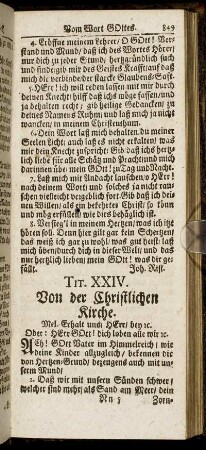 Vom Wort GOttes. 849
4. Eröffne meinem Lehrer/ O GOtt! Ver-
stand und Mund/ daß ich des Wortes Hörer/
nur dich zu jeder Stund/ hertzgründlich such
und find:gib mir des Geistes Krafft:auf daß
mich die verbinde/der starcke Glaubens-Safft.
5. HErr! ich will reden lassen mit mir durch
deinen Knecht hilff daß ichs möge fassen/ und
ja behalten recht: gib heilige Gedancken/ zu
deines Namens Ruhm/ und laß mich ja nicht
wancken/ in meinem Christenthum.
6. Dein Wort laß mich behalten du meiner
Seelen Licht: auch laß es nicht erkalten/ was
mir dein Knecht zuspricht: Gib daß ichs hertz-
lich liebe für alle Schätz und Pracht:und mich
darinnen übe: mein GOtt! zu Tag und Nacht.
7. Laß mich mit Andacht lauschen/ o HErr!
nach deinem Wort/ und solches ja nicht rau-
schen/ vielleicht vergeblich fort.Gib daß ich dei-
nen Willen/ als ein bekehrter Christ/ so kann
und mög erfüllen/ wie dirs behäglich ist.
8. Versiegl' in meinem Hertzen/ was ich itz
hören soll. Denn hier gilt gar kein Schertzen/
das weiß ich gar zu wohl/ was gut heist laß
mich überdurch dich hie in dieser Welt/ und das
nur hertzlich lieben/ mein GOtt! was dir ge-
fällt. Joh. Rist.
TIT. XXIV.
Von der Christlichen
Kirche.
Mel. Erhalt uns HErr/ bey ꝛc.
Oder: HErr GOtt! dich loben alle wir ꝛc.
ACh! GOtt Vater im Himmelreich/ wir
deine Kinder allzugleich/ bekennen dir
von Hertzen-Grund/ dezeugens auch mit un-
serm Mund/
2. Daß wir mit unsern Sünden schwer/
welcher sind mehr/als Sand am Meer/ dein
Nn 5 Zorn-